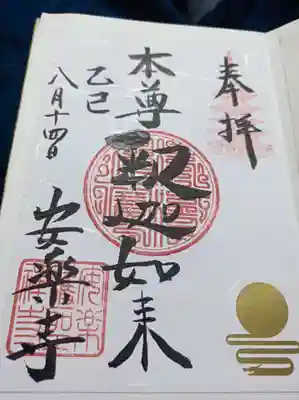 奉拝
本尊 釈迦如来
乙巳
八月十四日
安樂寺